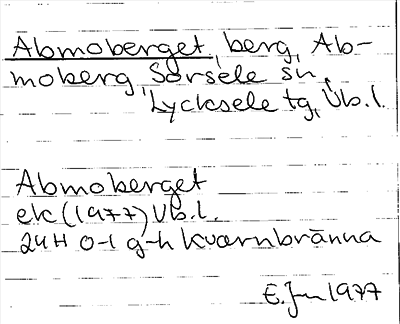 Abmoberget, berg, Ab-
moberg, Sorsele sn,
Lycksele tg, Vb.l.
Abmoberget
ek (1977) Vb.l.
24H 0-1 g-h Kvarnbränna
E. Jn 1977